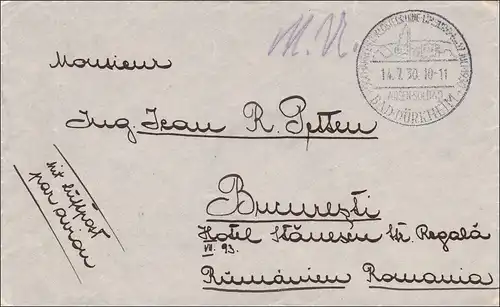 M. N.
14.7.30. 10-11
ARZEN-SOLBAD
BAD-DÜRKHEIM
Monsieur
Ing. Jean R.
mit Luftpost
par avion
București
Hotel Stănescu Str. Regală
VII. 93.
Rumänien Romania